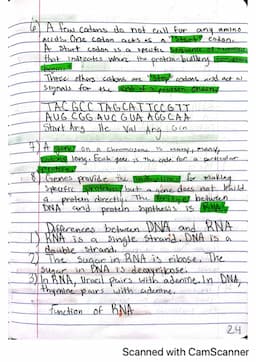 6) A few codons do not call for any amino
acids. One codon acts as a "start" codon.
A start codon is a specific sequence of
that indicates where the protein-building
These others codons are "stop" codons and act as
signals for the end of a protein chain.
TAC GCC TAG CAT TCC GTT
AUG CGG AUC GUA AGG CAA
Start Arg Ile Val Arg Gln
7) A gene on a chromosome is many, many,
long. Each gene is the code for a particular
protein.
8) Genes provide the for making
specific proteins but a gene does not build
a protein directly. The bridge between
DNA and protein synthesis is RNA.
Differences between DNA and RNA
1) RNA is a single strand. DNA is a
double strand.
2) The sugar in RNA is ribose. The
sugar in DNA is deoxyribose.
3) In RNA, Uracil pairs with adenine. In DNA,
thymine pairs with adenine.
function of RNA
24
Scanned with CamScanner